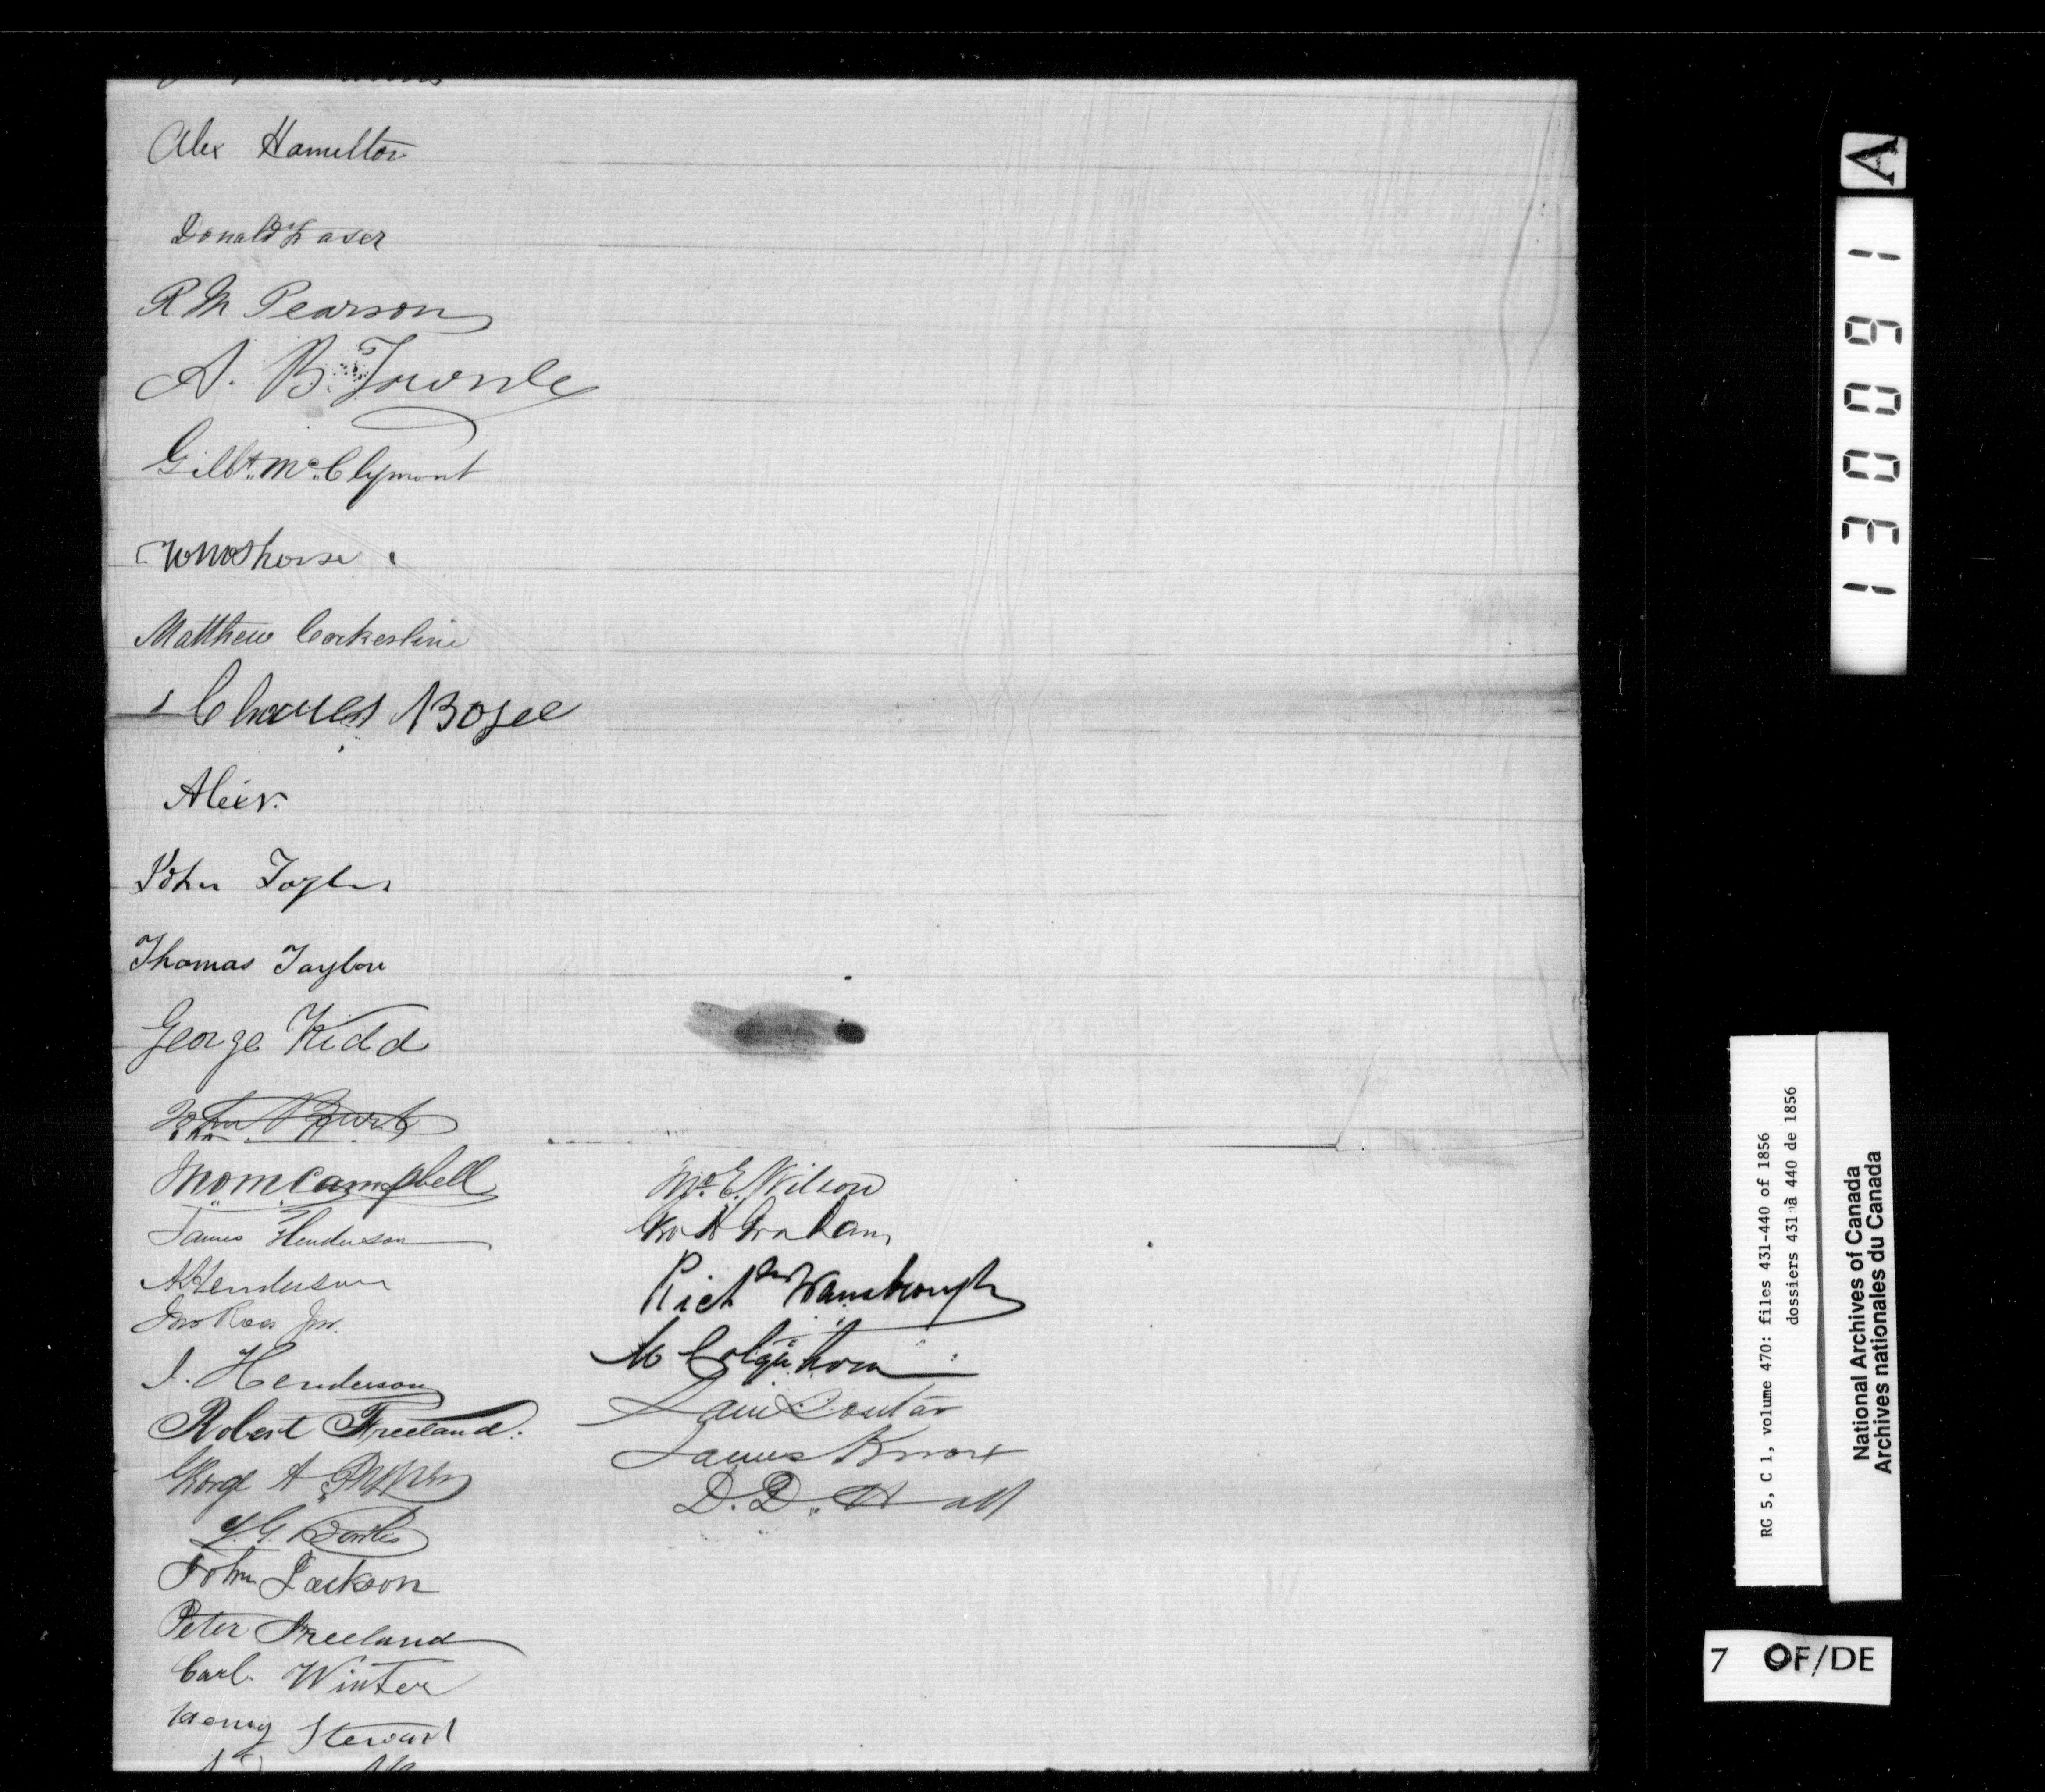 Alex Hamilton
Donald Fraser
R M Pearson
A. B. Townle
Gilbt. Mc. Clymont
Matthew Cockerline
Charles Bogee
Alexr.
John Taylor
Thomas Taylor
George Kidd
John
Thom Campbell
James Henderson
A Henderson
Jno Ross Jnr.
J. Henderson
Robert Freeland.
George A
J. G.
John Jackson
Peter Freeland
Carl Winter
Henry Stewart
Jno. E. Wilson
Geo H Graham
Richd Wansbrough
M Colquhoun
James Knox
D. D. Hall
A
130091
RG 5, C 1, volume 470: files 431-440 of 1856
dossiers 431 à 440 de 1856
National Archives of Canada
Archives nationales du Canada
7 OF/DE